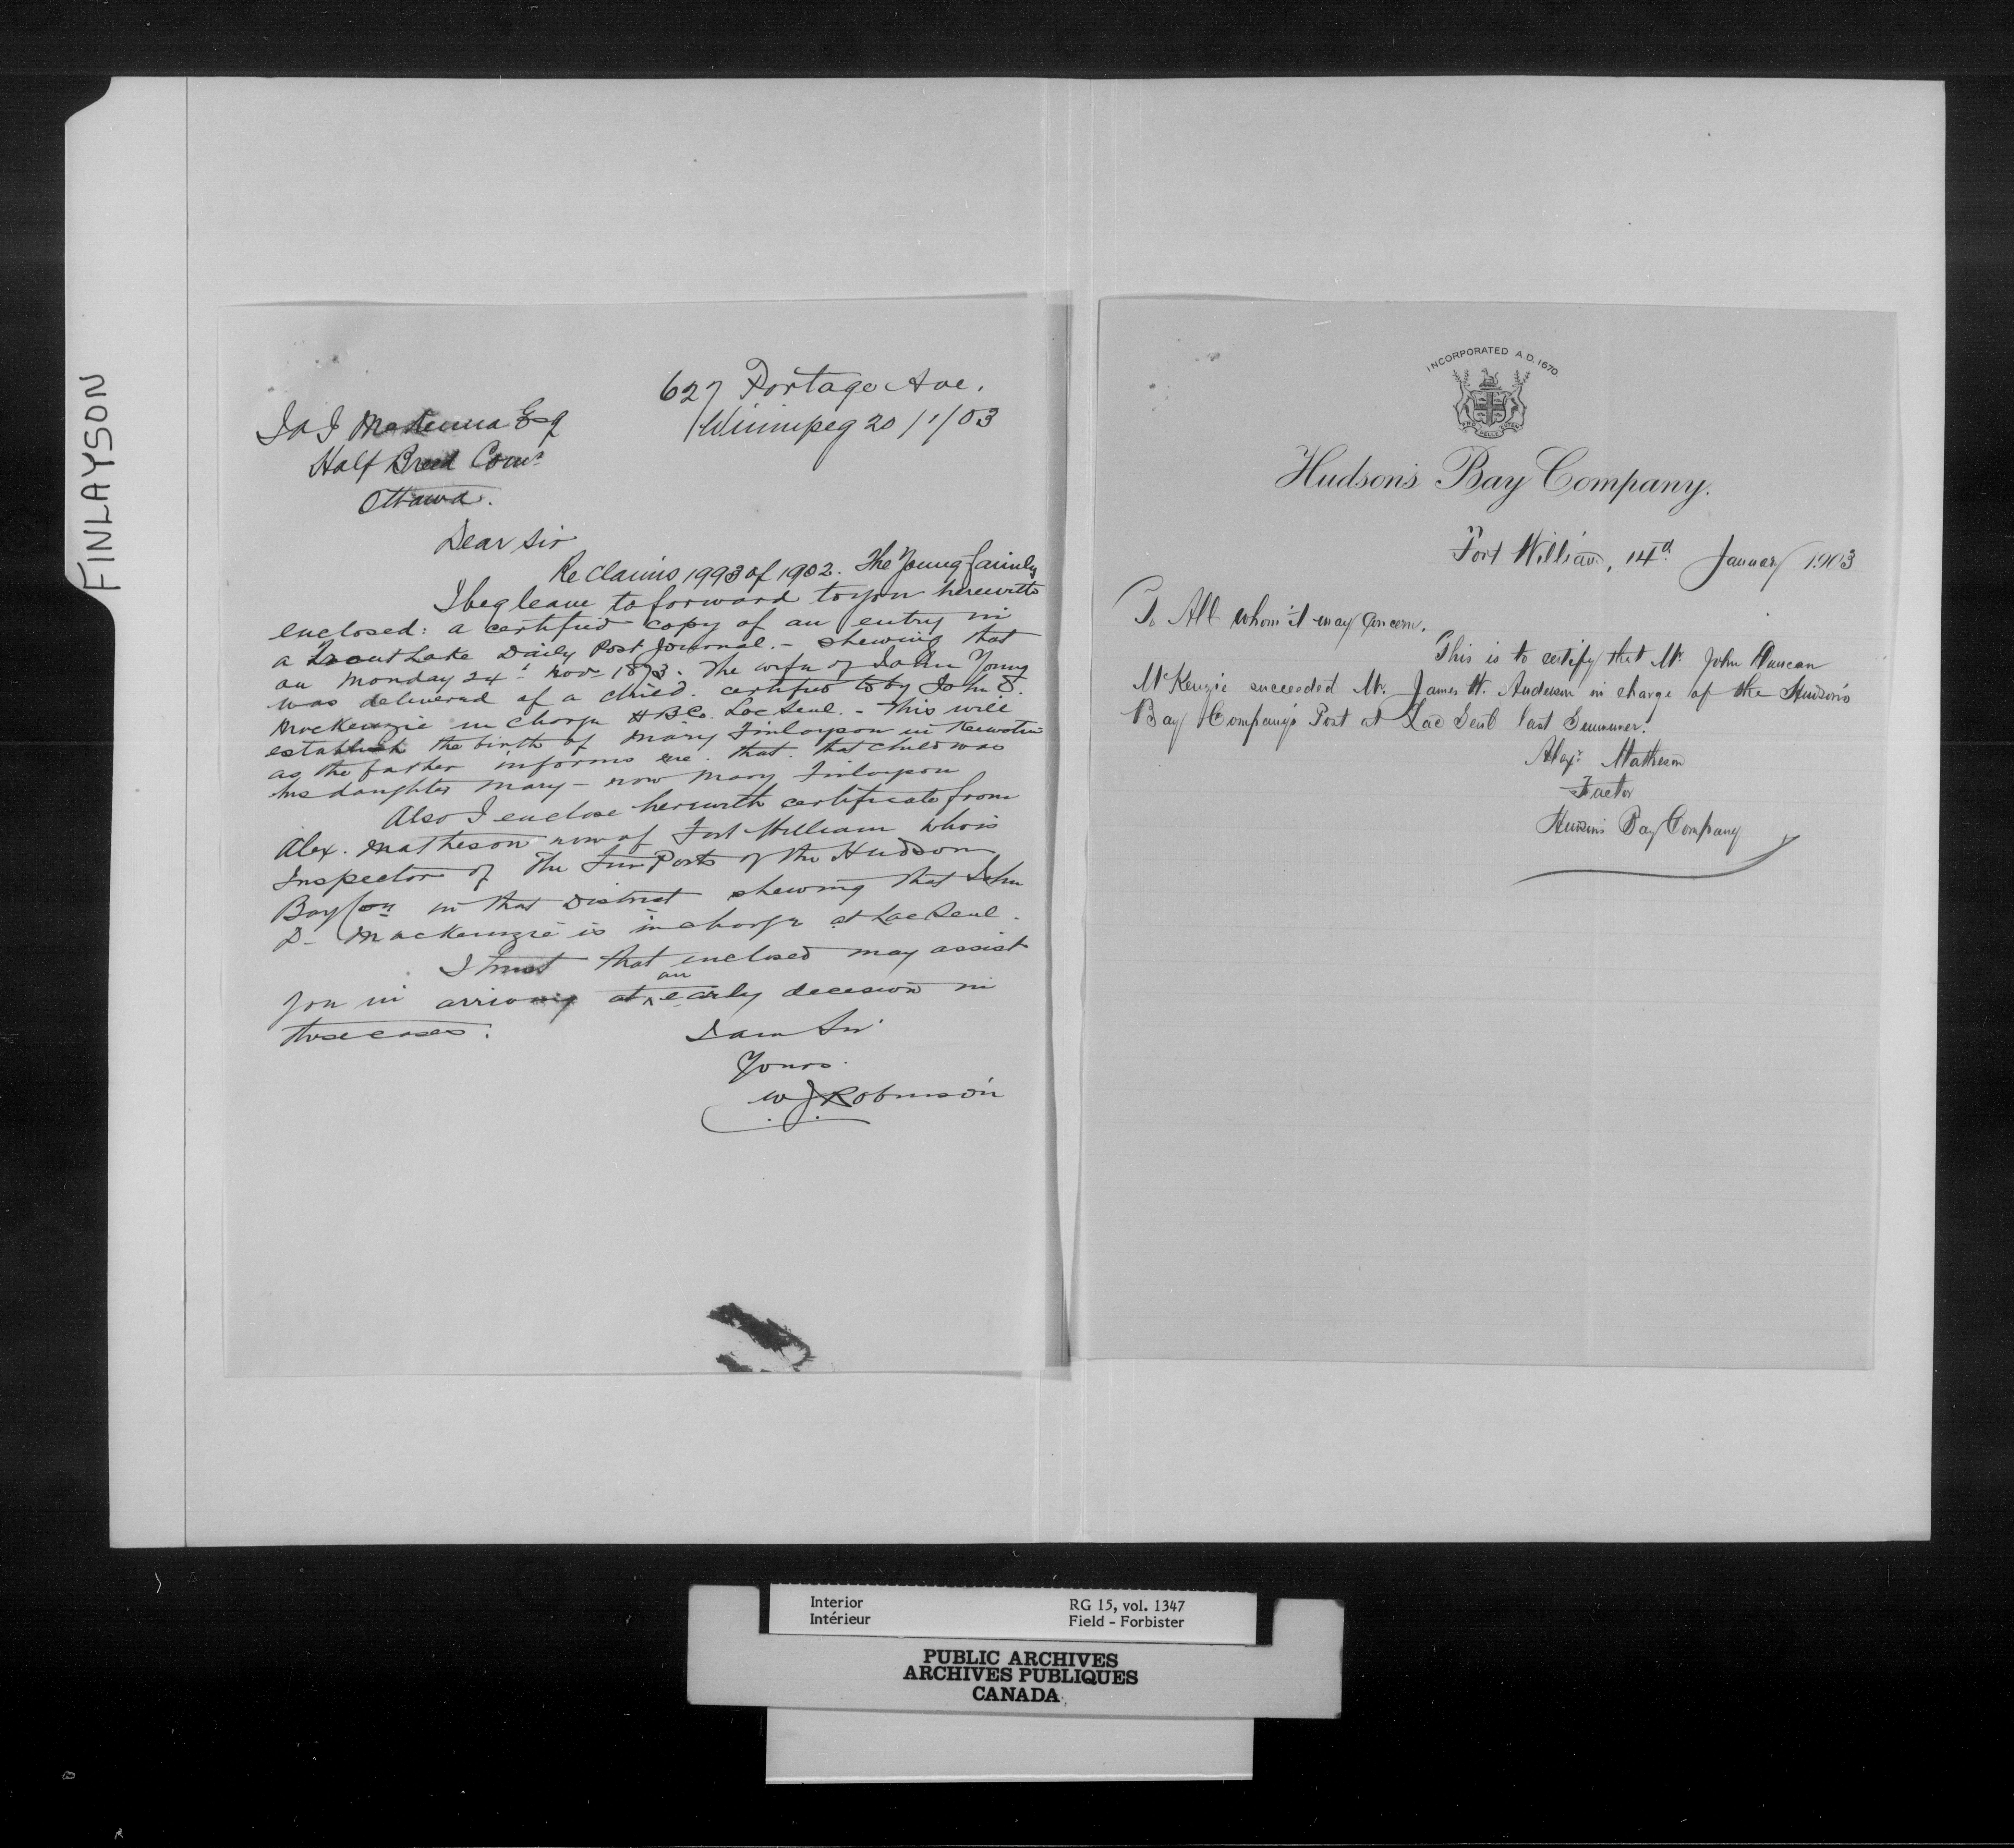 FINLAYSON
627 Portage Ave.
Winnipeg 20/1/03
J A J McKenna Esq
Half Breed Comr
Ottawa.
Dear Sir
Re Claims 1993 of 1902. The Young family
I beg leave to forward to you herewith
enclosed: a certified copy of an entry in
a Trout Lake Daily Post Journal. - shewing that
on Monday 24th Nov 1873. The wife of John Young
was delivered of a child. certified to by John D.
MacKenzie in charge H B Co. Lac Seul. - This will
establish the birth of Mary Finlayson in Keewatin
as the father informs me. that. that child was
his daughter Mary - now Mary Finlayson
Also I enclose herewith certificate from
Alex. Matheson now of Fort William who is
Inspector of The Fur Posts of the Hudson
Bay Coy in that District shewing that John
D- MacKenzie is in charge at Lac Seul.
I trust that enclosed may assist
you in arriving at an early decision in
those cases.
I am Sir
Yours
W J Robinson
INCORPORATED A.D. 1670
Hudson's Bay Company.
Fort William, 14th January 1903
To All whom it may Concern.
This is to certify that Mr. John Duncan
McKenzie succeeded Mr. James W. Anderson in charge of the Hudson's
Bay Company's Post at Lac Seul last Summer.
Alexr. Matheson
Factor
Hudson's Bay Company
Interior RG 15, vol. 1347
Intérieur Field - Forbister
PUBLIC ARCHIVES
ARCHIVES PUBLIQUES
CANADA